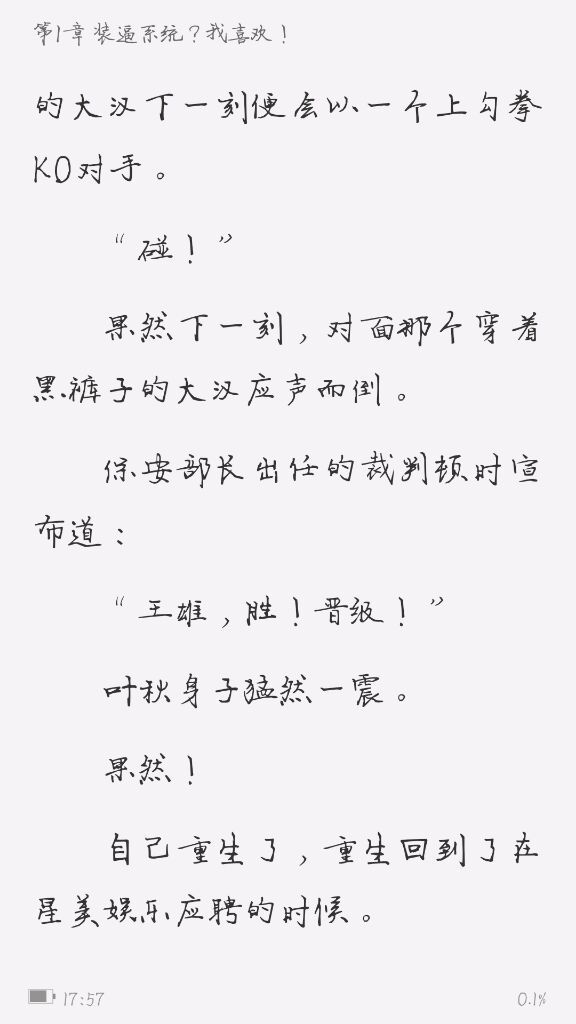 第1章 装逼系统？我喜欢！
的大汉下一刻便会以一个上勾拳
KO对手。
“碰！”
果然下一刻，对面那个穿着
黑裤子的大汉应声而倒。
保安部长出任的裁判顿时宣
布道：
“王雄，胜！晋级！”
叶秋身子猛然一震。
果然！
自己重生了，重生回到了在
星美娱乐应聘的时候。
17:57
0.1%